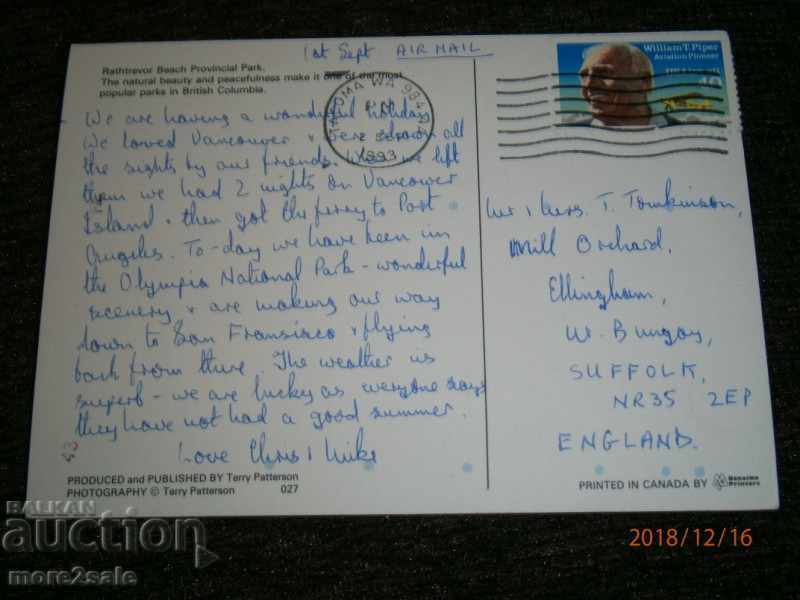 1st Sept AIR MAIL
Rathtrevor Beach Provincial Park.
The natural beauty and peacefulness make it one of the most
popular parks in British Columbia.
We are having a wonderful holiday
We loved Vancouver & were shown all
the sights by our friends. When we left
them we had 2 nights on Vancouver
Island & then got the ferry to Port
Angeles. To-day we have been in
the Olympia National Park - wonderful
scenery & are making our way
down to San Fransisco & flying
back from there. The weather is
superb - we are lucky as everyone says
they have not had a good summer.
Love Chris & Mike
43
PRODUCED and PUBLISHED BY Terry Patterson
PHOTOGRAPHY © Terry Patterson 027
TACOMA WA 984
PM
1993
William T. Piper
Aviation Pioneer
40
Mr & Mrs. T. Tomkinson,
Mill Orchard,
Ellingham,
Nr. Bungay,
SUFFOLK,
NR35 2EP
ENGLAND.
PRINTED IN CANADA BY Nanaimo Printers
BALKAN
auction
more2sale
2018/12/16